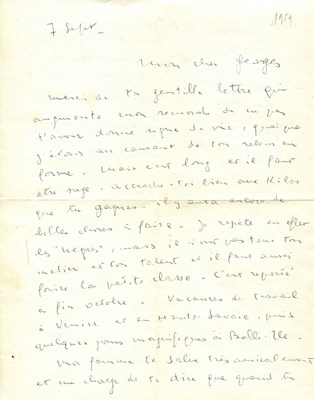 7 Sept.
1959
Mon cher Georges
merci de ta gentille lettre qui
augmente mon remords de ne pas
t'avoir donné signe de vie, quoique
j'étais au courant de ton retour en
forme. Mais c'est long et il faut
être sage, accroche-toi bien aux kilos
que tu gagnes. il y aura encore de
belles choses à faire. Je répète en effet
les "Nègres", mais il n'ont pas tous ton
métier et ton talent et il faut aussi
faire la petite classe. C'est reporté
à fin octobre. Vacances de travail
à Venise et en Haute Savoie, puis
quelques jours magnifiques à Belle-Ile.
Ma femme te salue très amicalement
et me charge de te dire que quand tu